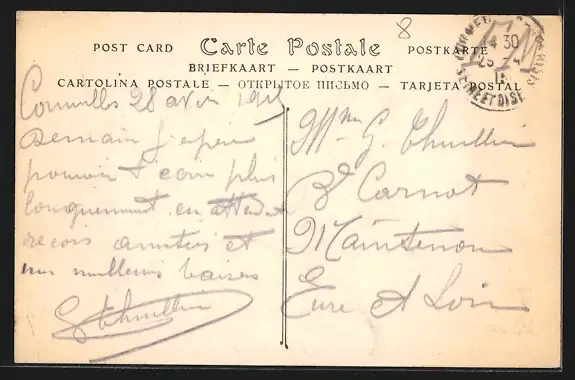 8
POST CARD Carte Postale POSTKARTE
BRIEFKAART — POSTKAART
CARTOLINA POSTALE — ОТКРЫТОЕ ПИСЬМО — TARJETA POSTAL
14 30
SEINE ET OISE
28 avril
Demain j'espère
pouvoir t'ecrire plus
longuement en attendant
reçois amitiés et
mes meilleurs baisers
G Thuillier
Mme G. Thuillier
Bd Carnot
Maintenon
Eure et Loir